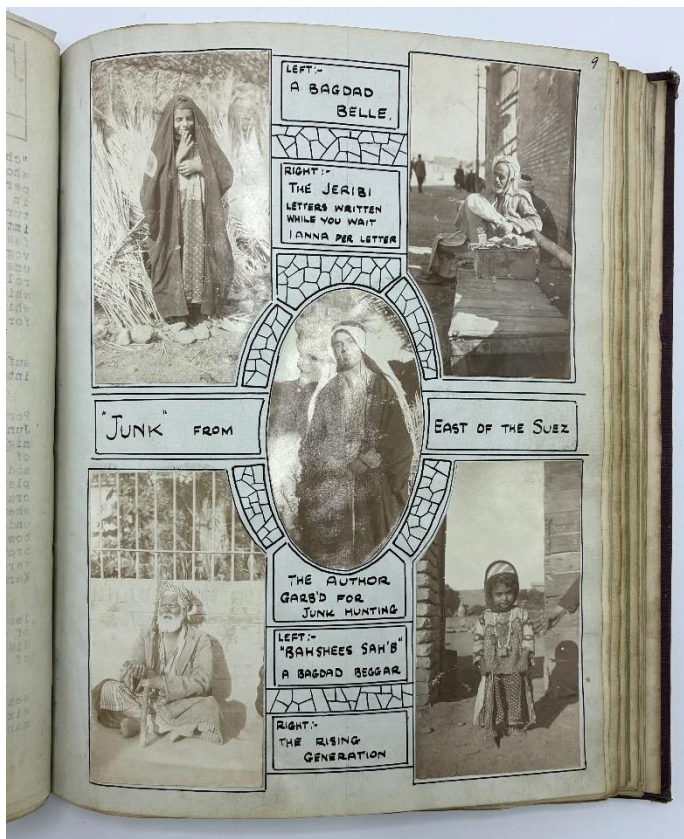 9
LEFT:-
A BAGDAD
BELLE.
RIGHT:-
THE JERIBI
LETTERS WRITTEN
WHILE YOU WAIT
1 ANNA PER LETTER
"JUNK" FROM
EAST OF THE SUEZ
THE AUTHOR
GARB'D FOR
JUNK HUNTING
LEFT:-
"BAHSHEES SAH'B"
A BAGDAD BEGGAR
RIGHT:-
THE RISING
GENERATION